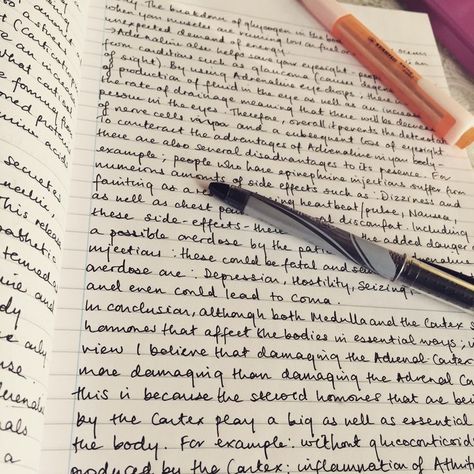 o stress
(Cortisol
what can
e forming
oned prote
mine acids
secretes
This releas
pathetic
e only
drenals
als
a
body. The breakdown of glycogen in the bod
when you muscles are running low of fuel or
unexpected demand of energy.
Adrenaline also helps save your eyesight - peop
from conditions such as glaucoma (cause degene
of sight). By using Adrenaline eye drops, there is
of production of fluid in the eye as well as an incre
the rate of drainage meaning that there will be decrea
pressure in the eye. Therefore, overall it prevents the deterioration
of nerve cells and a subsequent loss of eyesight
To counteract the advantages of Adrenaline in your body
there are also several disadvantages to its presence. For
example; people who have epinephrine injections suffer from
numerous amounts of side effects such as: Dizziness and
fainting as a heartbeat/pulse, Nausea,
as well as chest pai discomfort. Including
these side-effects - there the added danger
a possible overdose by the pati
injections: these could be fatal and se
overdose are: Depression, Hostility, Seizing,
and even could lead to Coma.
In conclusion, although both Medulla and the Cortex
hormones that affect the bodies in essential ways; in
view I believe that damaging the Adrenal Corte
more damaging than damaging the Adrenal
this is because the steroid hormones that are bei
by the Cortex play a big as well as essential
the body. For example: without glucocorticoid
produced by the Cortex, inflammation of
STABILO